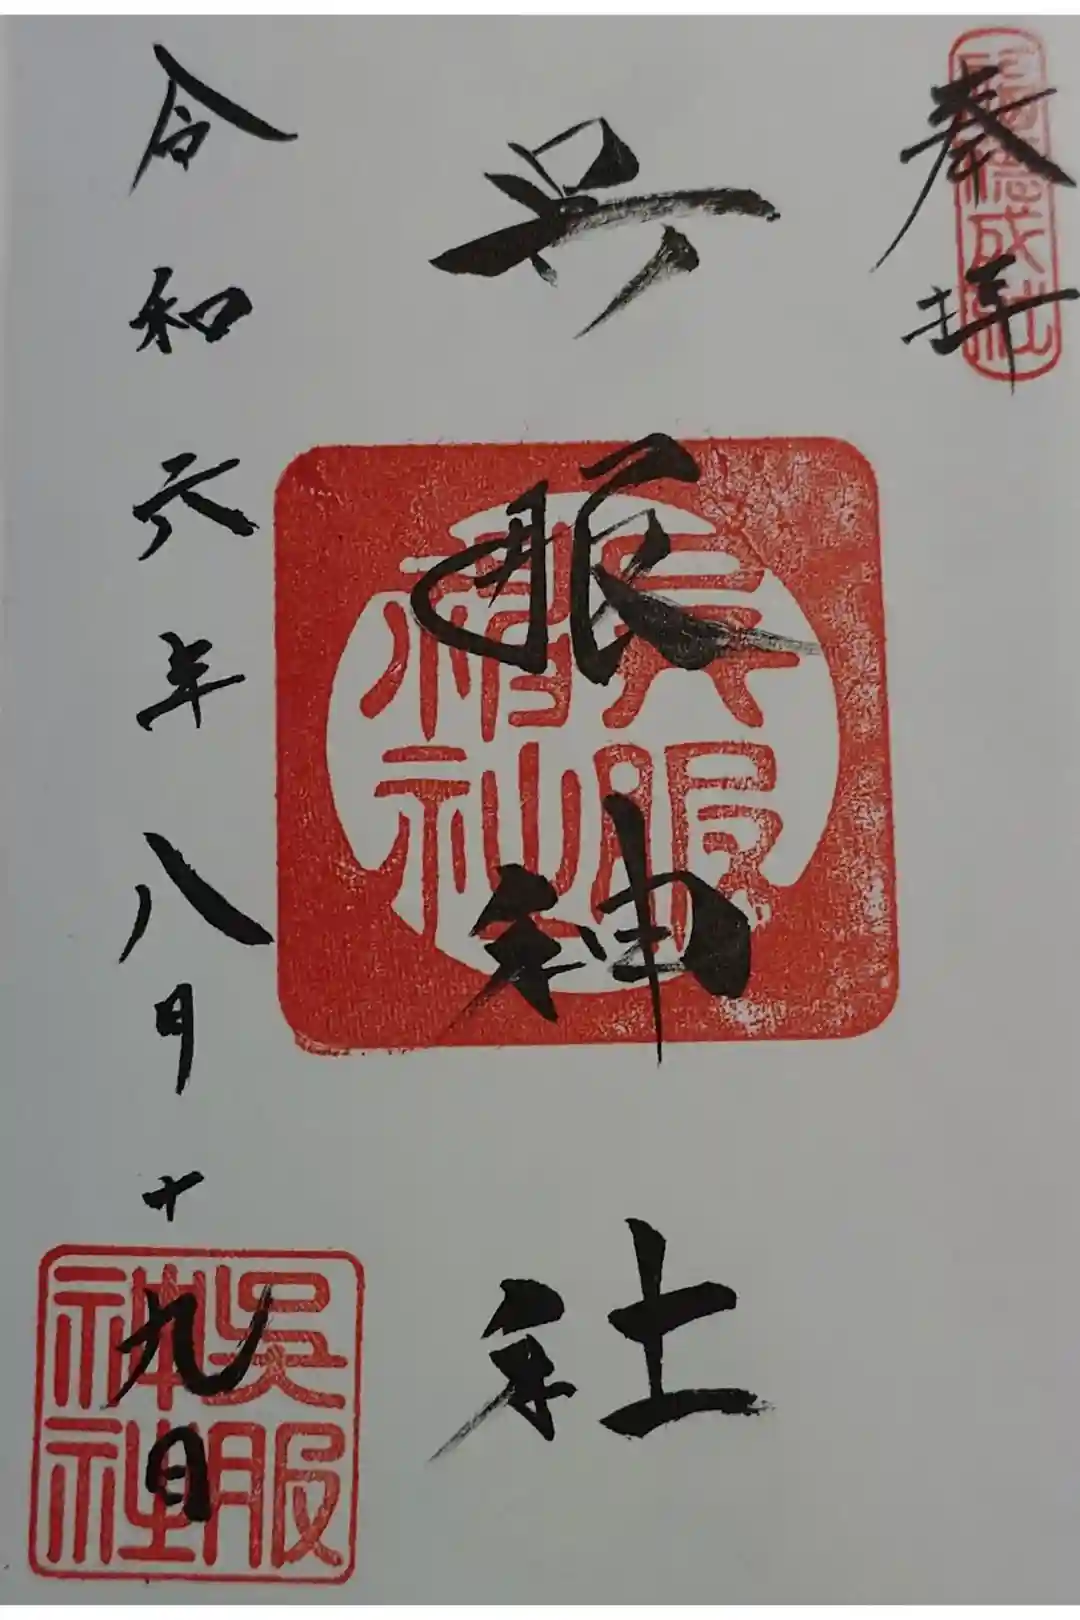 奉拝
呉服神社
令和六年八月十九日
呉服
神社
呉服
神社